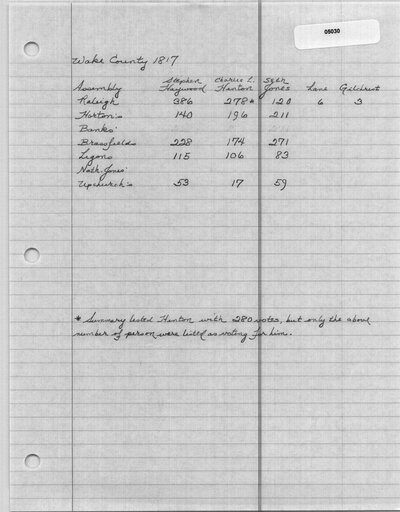 05030
Wake County 1817
Stephen Charles L. Seth
Assembly Haywood Hinton Jones Lane Gilchrist
Raleigh 386 278* 120 6 3
Horton's 140 196 211
Banks'
Brassfields 228 174 271
Ligons 115 106 83
Nath. Jones'
Upchurch's 53 17 59
* Summary listed Hinton with 280 votes, but only the above
number of person were listed as voting for him.